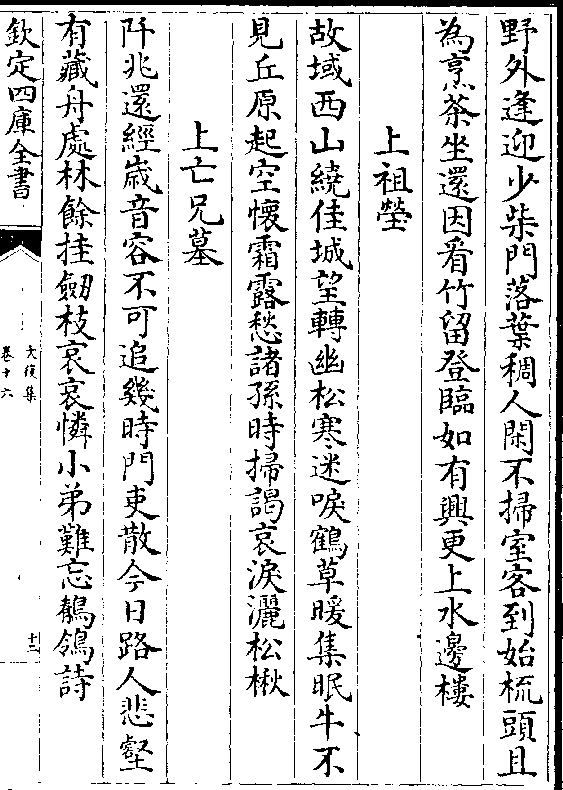 野外逢迎少柴門落葉稠人閑不掃室客到始梳頭且
為烹茶坐還因看竹留登臨如有興更上水邊樓
上祖塋
故域西山繞佳城望轉幽松寒迷唳鶴草暖集眠牛不
見丘原起空懷霜露愁諸孫時掃謁哀淚灑松楸
上亡兄墓
阡兆還經歲音容不可追幾時門吏散今日路人悲壑
有藏舟處林餘挂劒枝哀哀憐小弟難忘鶺鴒詩
欽定四庫全書
大復集
卷十六
十二